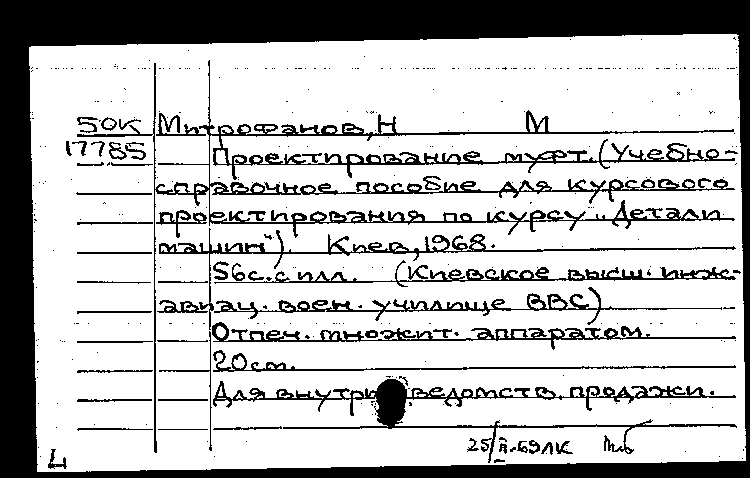 50К Митрофанов, Н М
17785 Проектирование муфт. (Учебно-
справочное пособие для курсового
проектирования по курсу „Детали
машин"). Киев, 1968.
56с. с илл. (Киевское высш. инж.
авиац. воен. училище ВВС)
Отпеч. множит. аппаратом.
20см.
Для внутриведомств. продажи.
25/II-69 ЛК